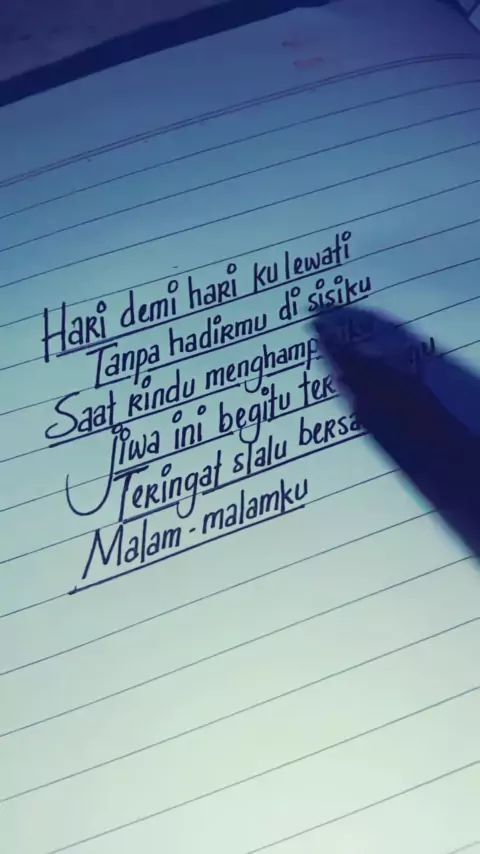 Hari demi hari ku lewati
Tanpa hadirmu di sisiku
Saat rindu
Jiwa ini begitu
Teringat slalu
Malam - malamku